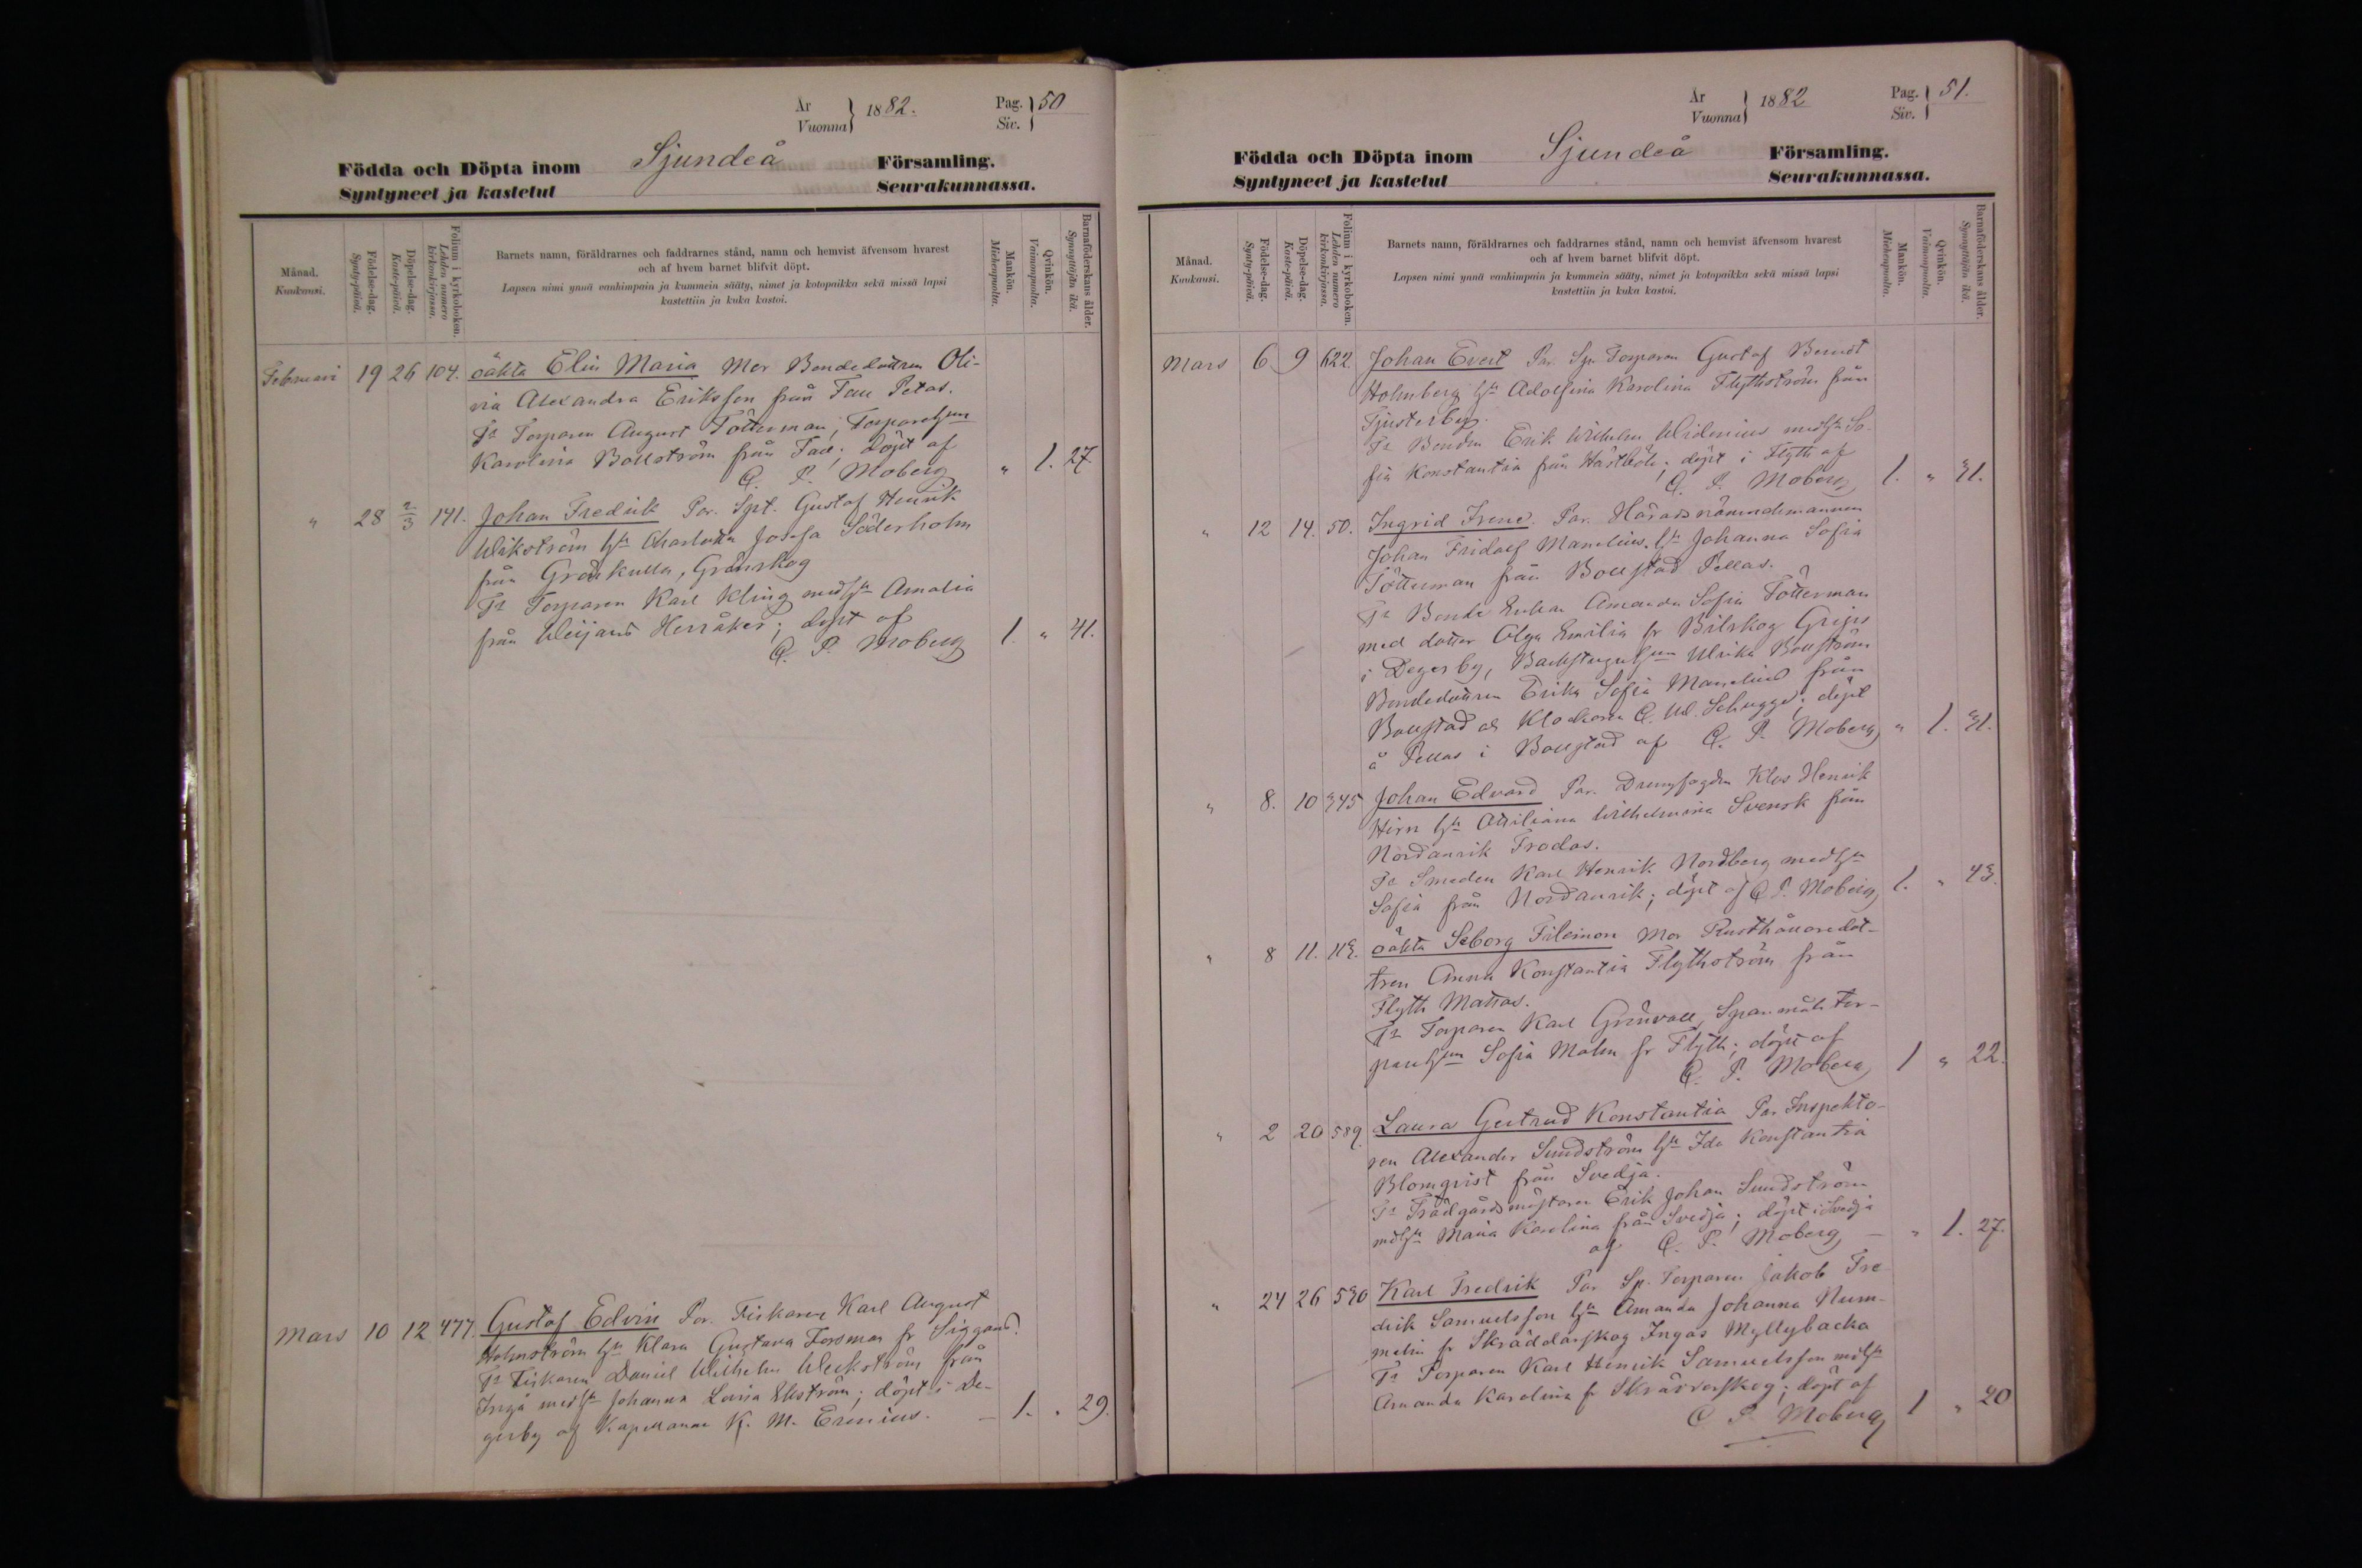 År
Vuonna } 1882.
Pag.
Siv. } 50
Födda och Döpta inom Sjundeå Församling.
Syntyneet ja kastetut Seurakunnassa.
Månad.
Kuukausi.
Födelse-dag.
Synty-päivä.
Döpelse-dag.
Kaste-päivä.
Folium i kyrkoboken.
Lehden numero kirkonkirjassa.
Barnets namn, föräldrarnes och faddrarnes stånd, namn och hemvist äfvensom hvarest
och af hvem barnet blifvit döpt.
Lapsen nimi ynnä vanhimpain ja kummein sääty, nimet ja kotopaikka sekä missä lapsi
kastettiin ja kuka kastoi.
Mankön.
Miehenpuolta.
Qvinkön.
Vaimonpuolta.
Barnaföderskans ålder.
Synnyttäjän ikä.
Februari 19 26 104. oäkta Elin Maria Mor Bondedottren Oli-
via Alexandra Eriksson från Fall Petas.
Ts Torparen August Tötterman, Torpareh:n
Karolina Bollström från Fall; döpt af
C. P. Moberg " 1. 27.
" 28 2/3 141. Johan Fredrik Par. Spt. Gustaf Henrik
Wikström h:u Charlotta Josefa Söderholm
från Grönkulla, Grönskog
Ts Torparen Karl Kling med h:u Amalia
från Weijans Herråker; döpt af
C. P. Moberg 1. " 41.
Mars 10 12 477. Gustaf Edvin Par. Fiskaren Karl August
Holmström h:u Klara Gustava Forsman fr Siggans.
Ts Fiskaren Daniel Wilhelm Weckström från
Ingå med h:u Johanna Lovisa Ekström; döpt i De-
gerby af Kapellanen K. M. Erenius. — 1. " 29.
År
Vuonna } 1882
Pag.
Siv. } 51.
Födda och Döpta inom Sjundeå Församling.
Syntyneet ja kastetut Seurakunnassa.
Månad.
Kuukausi.
Födelse-dag.
Synty-päivä.
Döpelse-dag.
Kaste-päivä.
Folium i kyrkoboken.
Lehden numero kirkonkirjassa.
Barnets namn, föräldrarnes och faddrarnes stånd, namn och hemvist äfvensom hvarest
och af hvem barnet blifvit döpt.
Lapsen nimi ynnä vanhimpain ja kummein sääty, nimet ja kotopaikka sekä missä lapsi
kastettiin ja kuka kastoi.
Mankön.
Miehenpuolta.
Qvinkön.
Vaimonpuolta.
Barnaföderskans ålder.
Synnyttäjän ikä.
Mars 6 9 622. Johan Evert Par. Sp. Torparen Gustaf Berndt
Holmberg h:u Adolfina Karolina Flythström från
Tjusterby.
Ts Bonden Erik Wilhelm Widenius med h:u So-
fia Konstantia från Hästböle; döpt i Flyth af
C. P. Moberg 1. " 31.
" 12 14. 50. Ingrid Irene. Par. Häradsnämndemannen
Johan Fridolf Manelius. h:u Johanna Sofia
Tötterman från Bollstad Pellas.
Ts Bonde Enkan Amanda Sofia Tötterman
med dotter Olga Emilia fr Bilskog Grips
i Degerby, Backstuguh:n Ulrika Bollström
Bondedottren Erika Sofia Manelius från
Bollstad och Klockaren C. Schugge; döpt
å Pellas i Bollstad af C. P. Moberg " 1. 31.
" 8. 10 345 Johan Edvard Par. Drengfogden Klas Henrik
Hirn h:u Wilhelmina Svensk från
Nordanvik Frodas.
Ts Smeden Karl Henrik Nordberg med h:u
Sofia från Nordanvik; döpt af C. P. Moberg 1. " 43.
" 8 11. 113. oäkta Seborg Filemon Mor Rusthållaredot-
tren Anna Konstantia Flythström från
Flyth Mattas.
Ts Torparen Karl Grönvall, Spanmåls tor-
pareh:n Sofia Malm fr Flyth; döpt af
C. P. Moberg 1 " 22.
" 2 20 589. Laura Gertrud Konstantia Par Inspekto-
ren Alexander Sundström h:u Ida Konstantia
Blomqvist från Svedja.
Ts Trädgårdsmästaren Erik Johan Sundström
med h:u Maria Karolina från Svedja; döpt i Svedja
af C. P. Moberg — " 1. 27.
" 24 26 530 Karl Fredrik Par Sp. Torparen Jakob Fre-
drik Samuelsson h:u Amanda Johanna Num-
melin fr Skräddarskog Ingas Myllybacka
Ts Torparen Karl Henrik Samuelsson med h:u
Amanda Karolina fr Skräddarskog; döpt af
C P. Moberg 1 " 20